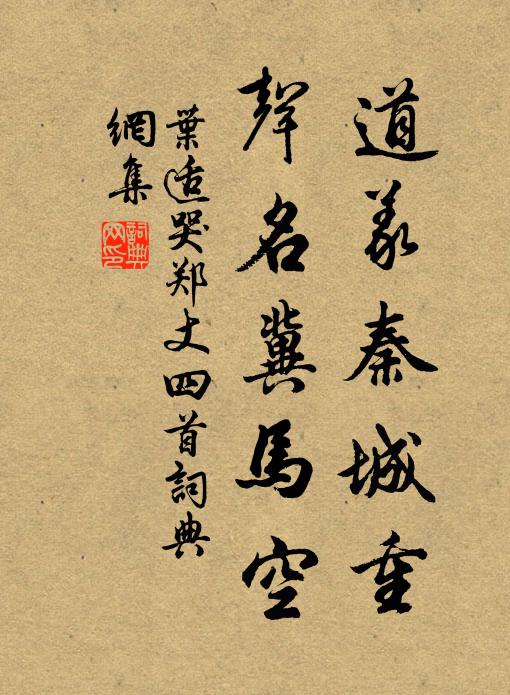 道義秦城重
聲名冀馬空
葉适哭郑丈四首詞典
網集
詞典
网印